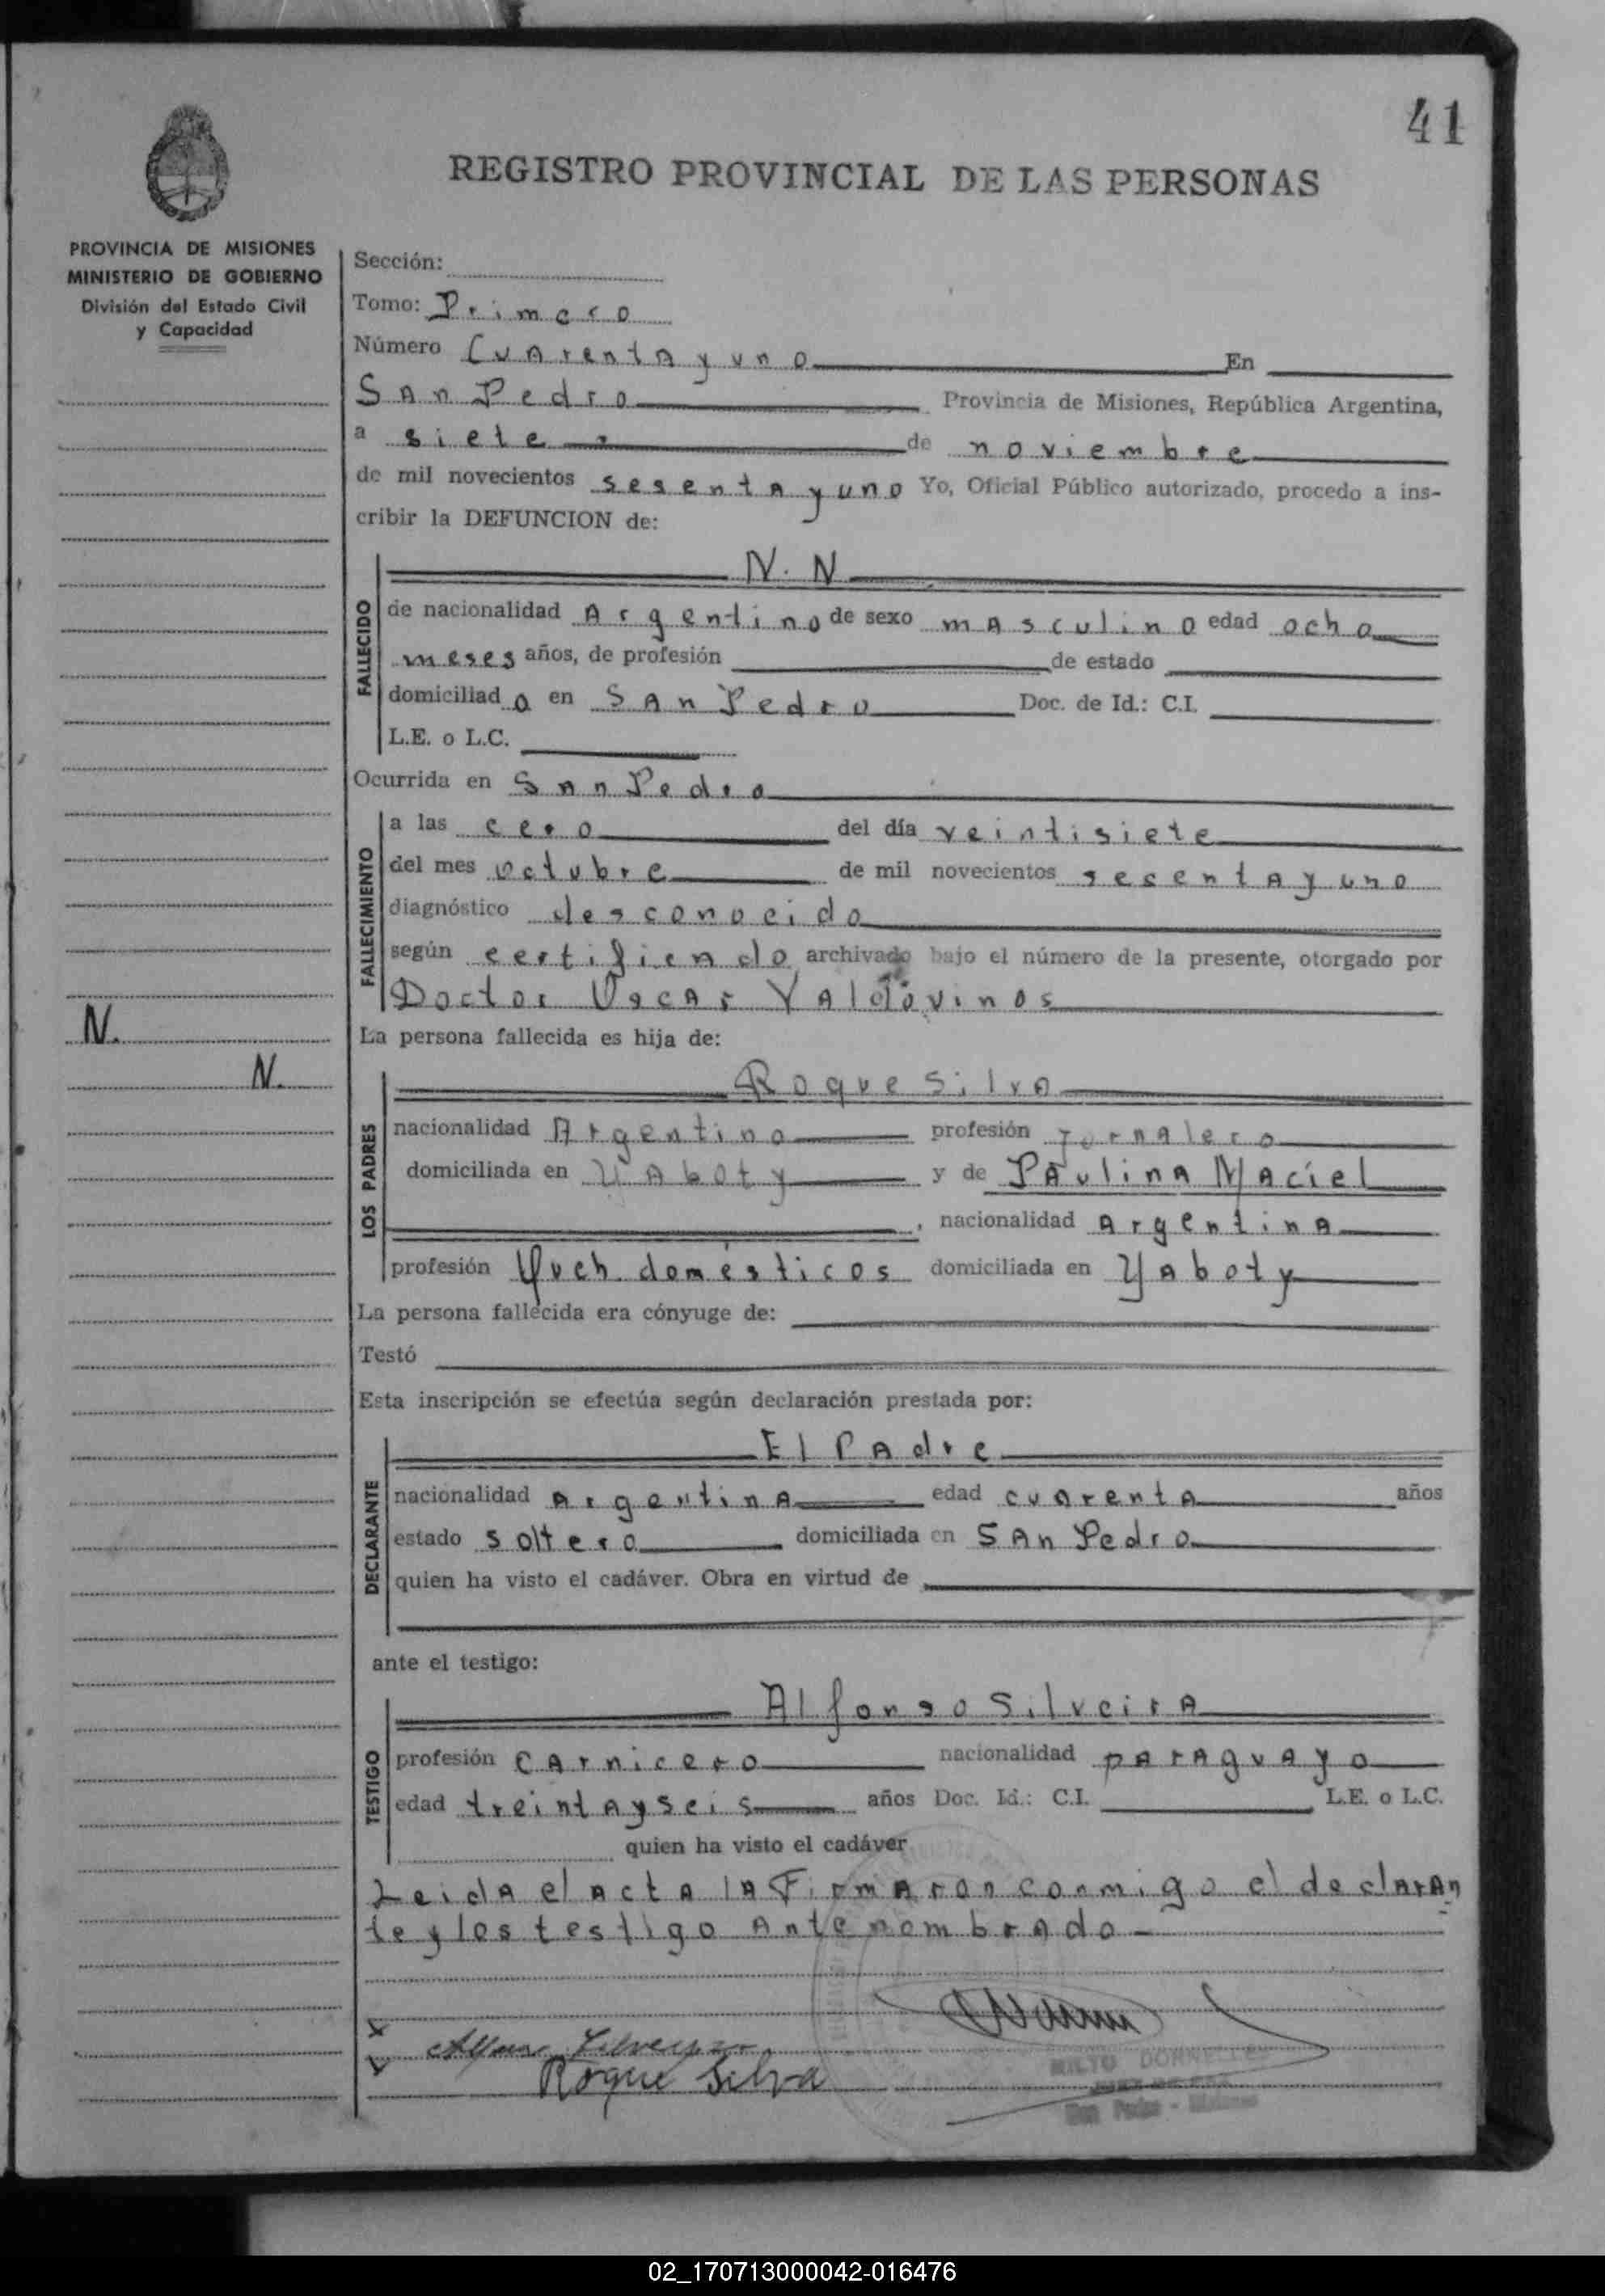 41
REGISTRO PROVINCIAL DE LAS PERSONAS
PROVINCIA DE MISIONES
MINISTERIO DE GOBIERNO
División del Estado Civil
y Capacidad
Sección:
Tomo: Primero
Número Cuarenta y uno En
San Pedro Provincia de Misiones, República Argentina,
a siete de noviembre
de mil novecientos sesenta y uno Yo, Oficial Público autorizado, procedo a ins-
cribir la DEFUNCION de:
FALLECIDO
N. N
de nacionalidad Argentino de sexo masculino edad ocho
meses años, de profesión de estado
domiciliado en San Pedro Doc. de Id.: C.I.
L.E. o L.C.
Ocurrida en San Pedro
FALLECIMIENTO
a las cero del día veintisiete
del mes octubre de mil novecientos sesenta y uno
diagnóstico desconocido
según certificado archivado bajo el número de la presente, otorgado por
Doctor Oscar Valdovinos
N.
N.
La persona fallecida es hija de:
LOS PADRES
Roque Silva
nacionalidad Argentino profesión jornalero
domiciliada en Yaboty y de Paulina Maciel
, nacionalidad Argentina
profesión Queh. domésticos domiciliada en Yaboty
La persona fallecida era cónyuge de:
Testó
Esta inscripción se efectúa según declaración prestada por:
DECLARANTE
El Padre
nacionalidad Argentina edad cuarenta años
estado soltero domiciliada en San Pedro
quien ha visto el cadáver. Obra en virtud de
ante el testigo:
TESTIGO
Alfonso Silveira
profesión carnicero nacionalidad paraguayo
edad treinta y seis años Doc. Id.: C.I. L.E. o L.C.
quien ha visto el cadáver
Leida el acta la Firmaron conmigo el declaran
te y los testigo antenombrado
Roque Silva
MILTO DORNELLES
JUEZ DE PAZ
San Pedro - Misiones
02_170713000042-016476